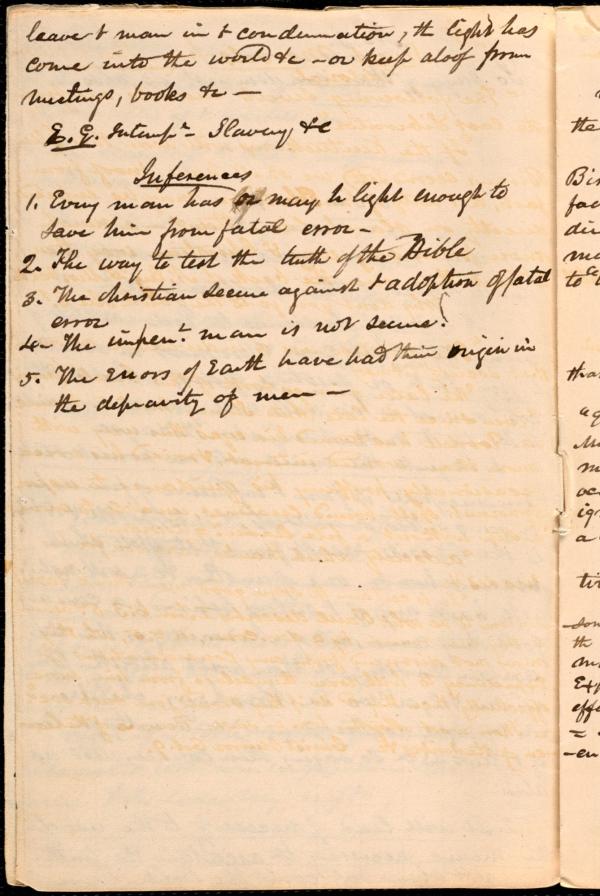 leave & man in & condemnation, th light has
come into the world &c - or keep aloof from
meetings, books &c -
E.G. Intemp.ce - Slavery &c
Inferences
1. Every man has or may h light enough to
save him from fatal error -
2. The way to test the truth of the Bible
3. The christian secure against & adoption of fatal
error
4. The impen.t man is not secure!
5. The Errors of Earth have had their origin in
the depravity of men -
the